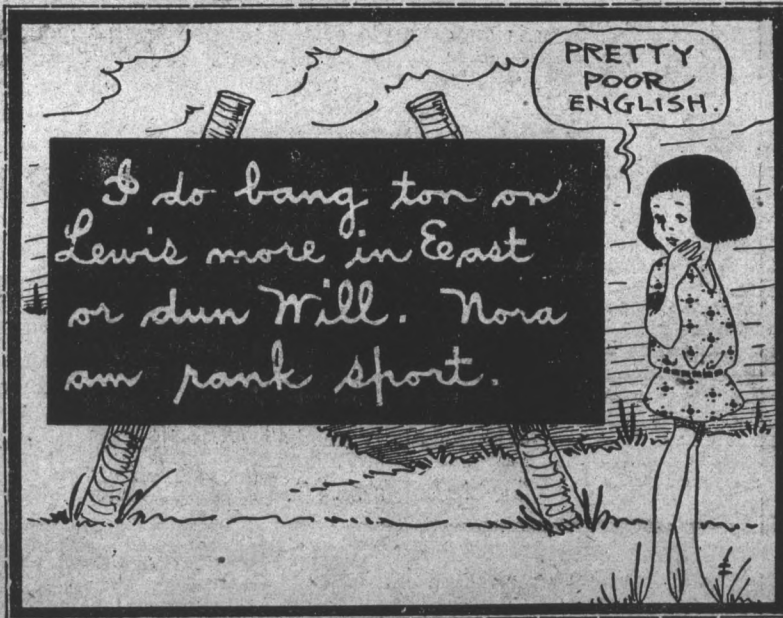 PRETTY
POOR
ENGLISH.
I do bang ton on
Lewis more in East
or dun Will. Nora
am rank sport.